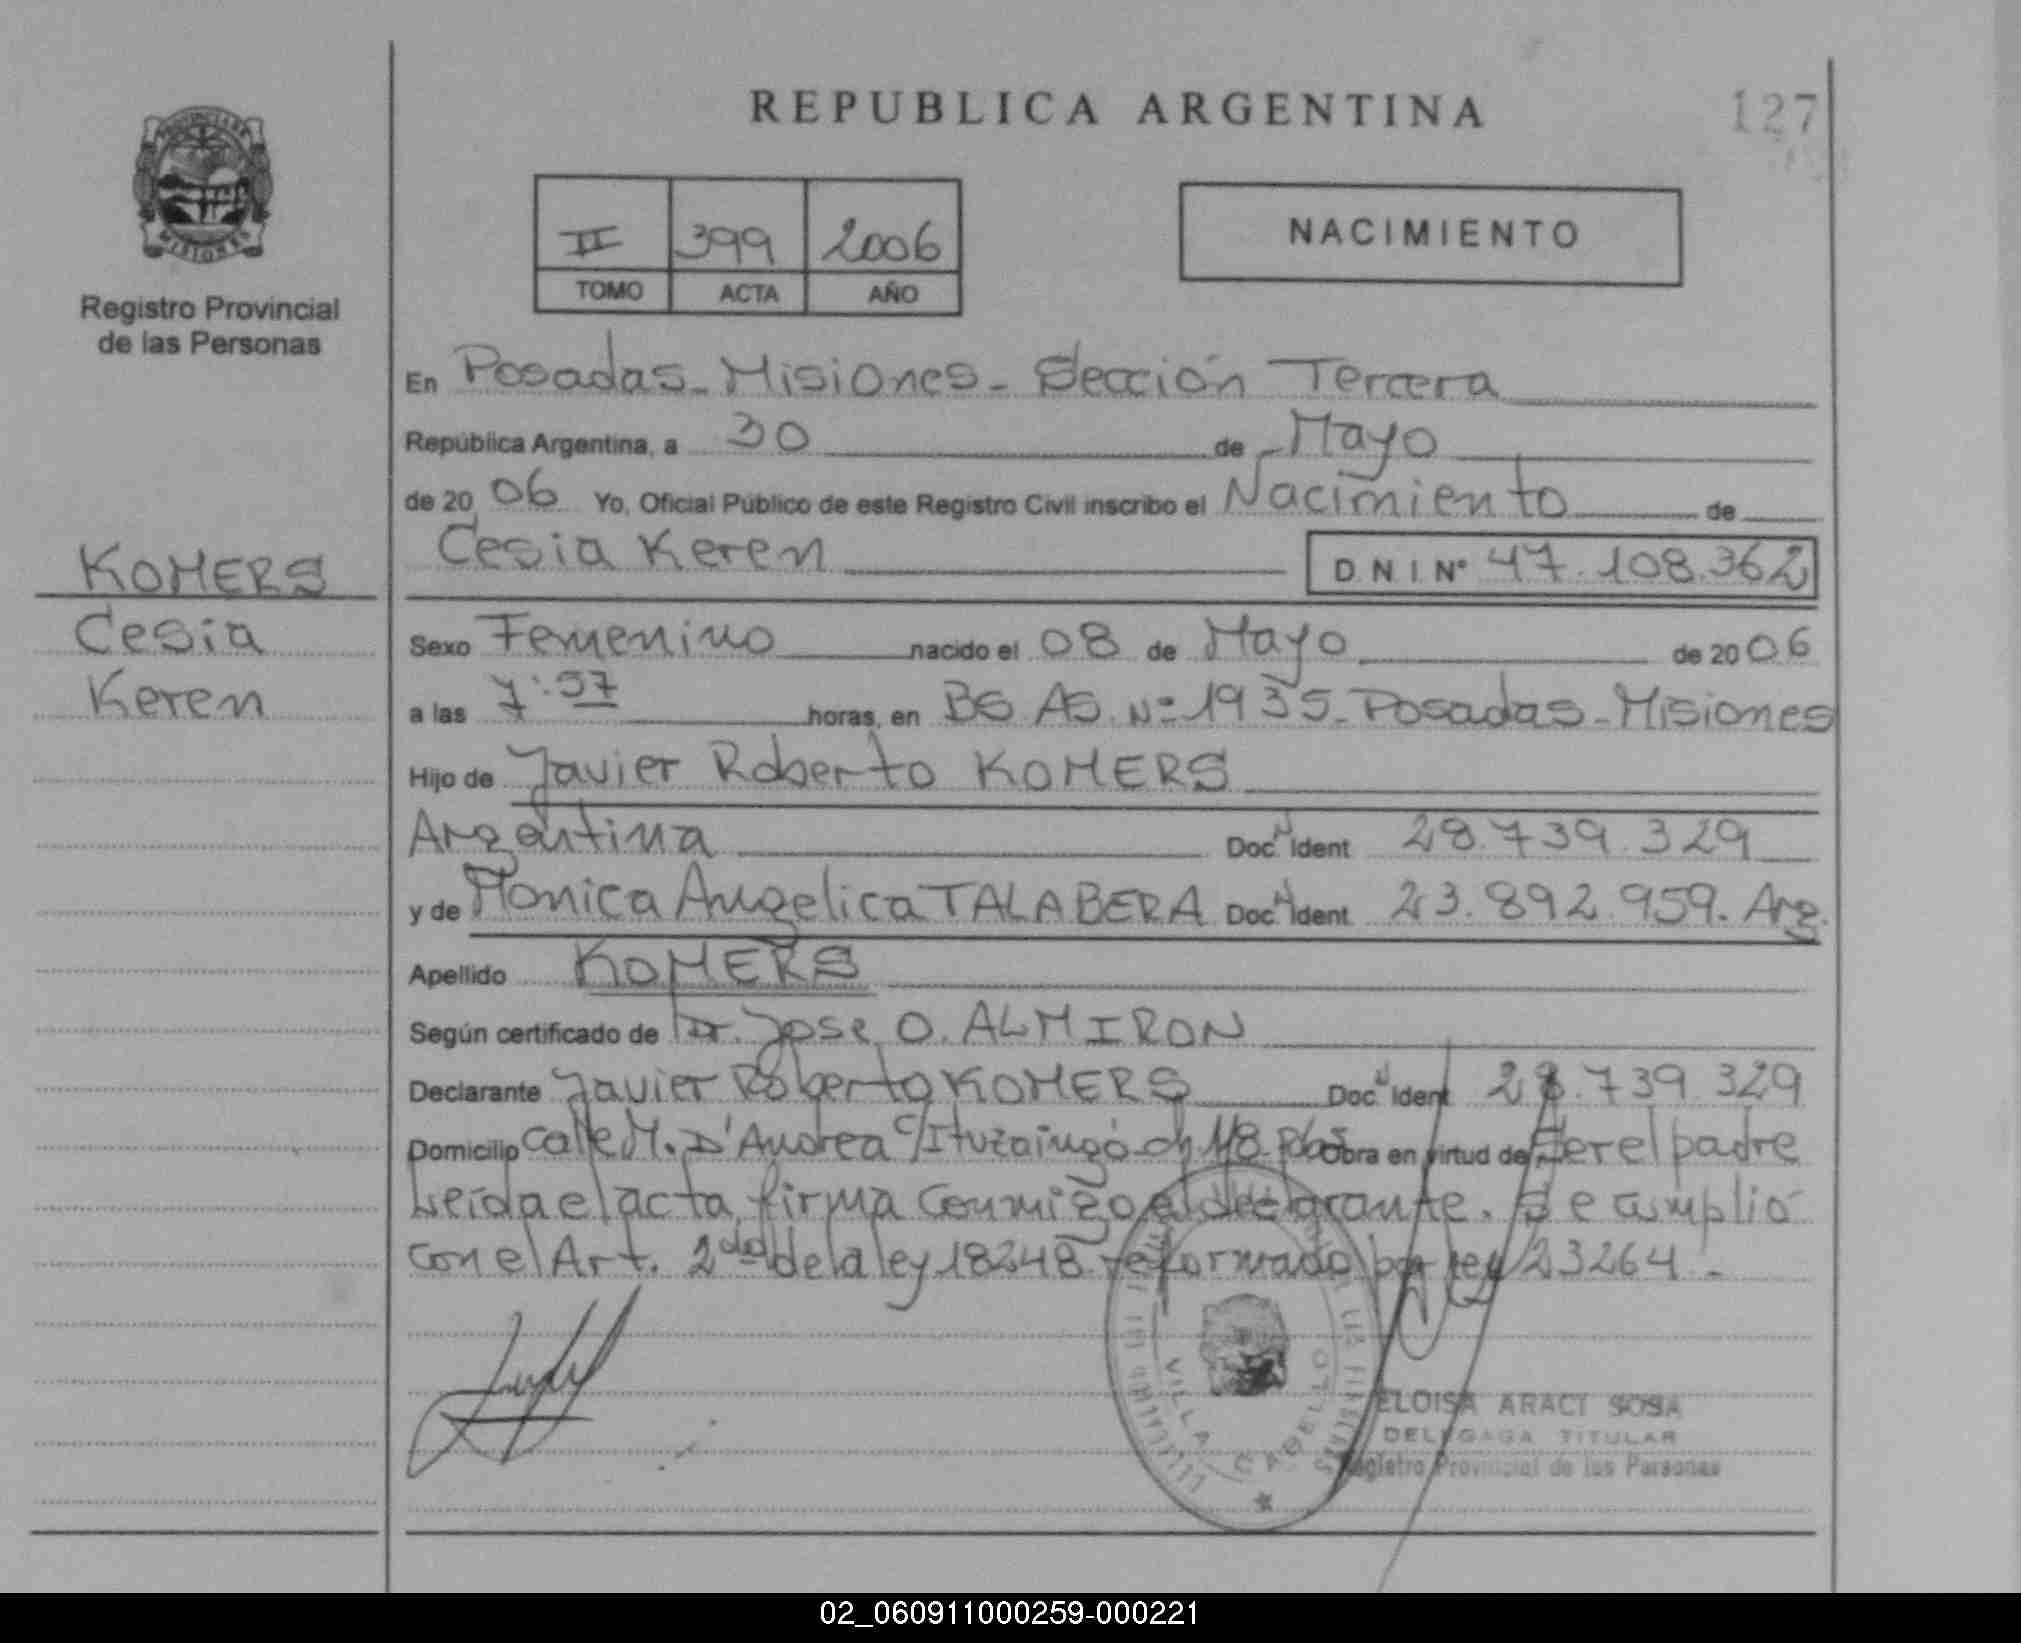 REPUBLICA ARGENTINA
127
PROVINCIA DE
MISIONES
Registro Provincial
de las Personas
II 399 2006
TOMO ACTA AÑO
NACIMIENTO
En Posadas - Misiones - Sección Tercera
República Argentina, a 30 de Mayo
de 20 06 Yo, Oficial Público de este Registro Civil inscribo el Nacimiento de
Cesia Keren D.N.I. Nº 47.108.362
KOMERS
Cesia
Keren
Sexo Femenino nacido el 08 de Mayo de 20 06
a las 7:57 horas, en BS AS. Nº 1935 - Posadas - Misiones
Hijo de Javier Roberto KOMERS
Argentina Doc. N Ident 28.739.329
y de Monica Angelica TALABERA Doc. N Ident 23.892.959. Arg.
Apellido KOMERS
Según certificado de Dr. Jose O. ALMIRON
Declarante Javier Roberto KOMERS Doc. N Ident 28.739.329
Domicilio calle M. D'Andrea c/ Ituzaingó ch 118 Pdas Obra en virtud de Ser el padre
Leída el acta, firma conmigo el declarante. Se cumplió
con el Art. 2do de la ley 18248 reformado por ley 23264 -
VILLA CABELLO
ELOISA ARACI SOSA
DELEGADA TITULAR
Registro Provincial de las Personas
02_060911000259-000221